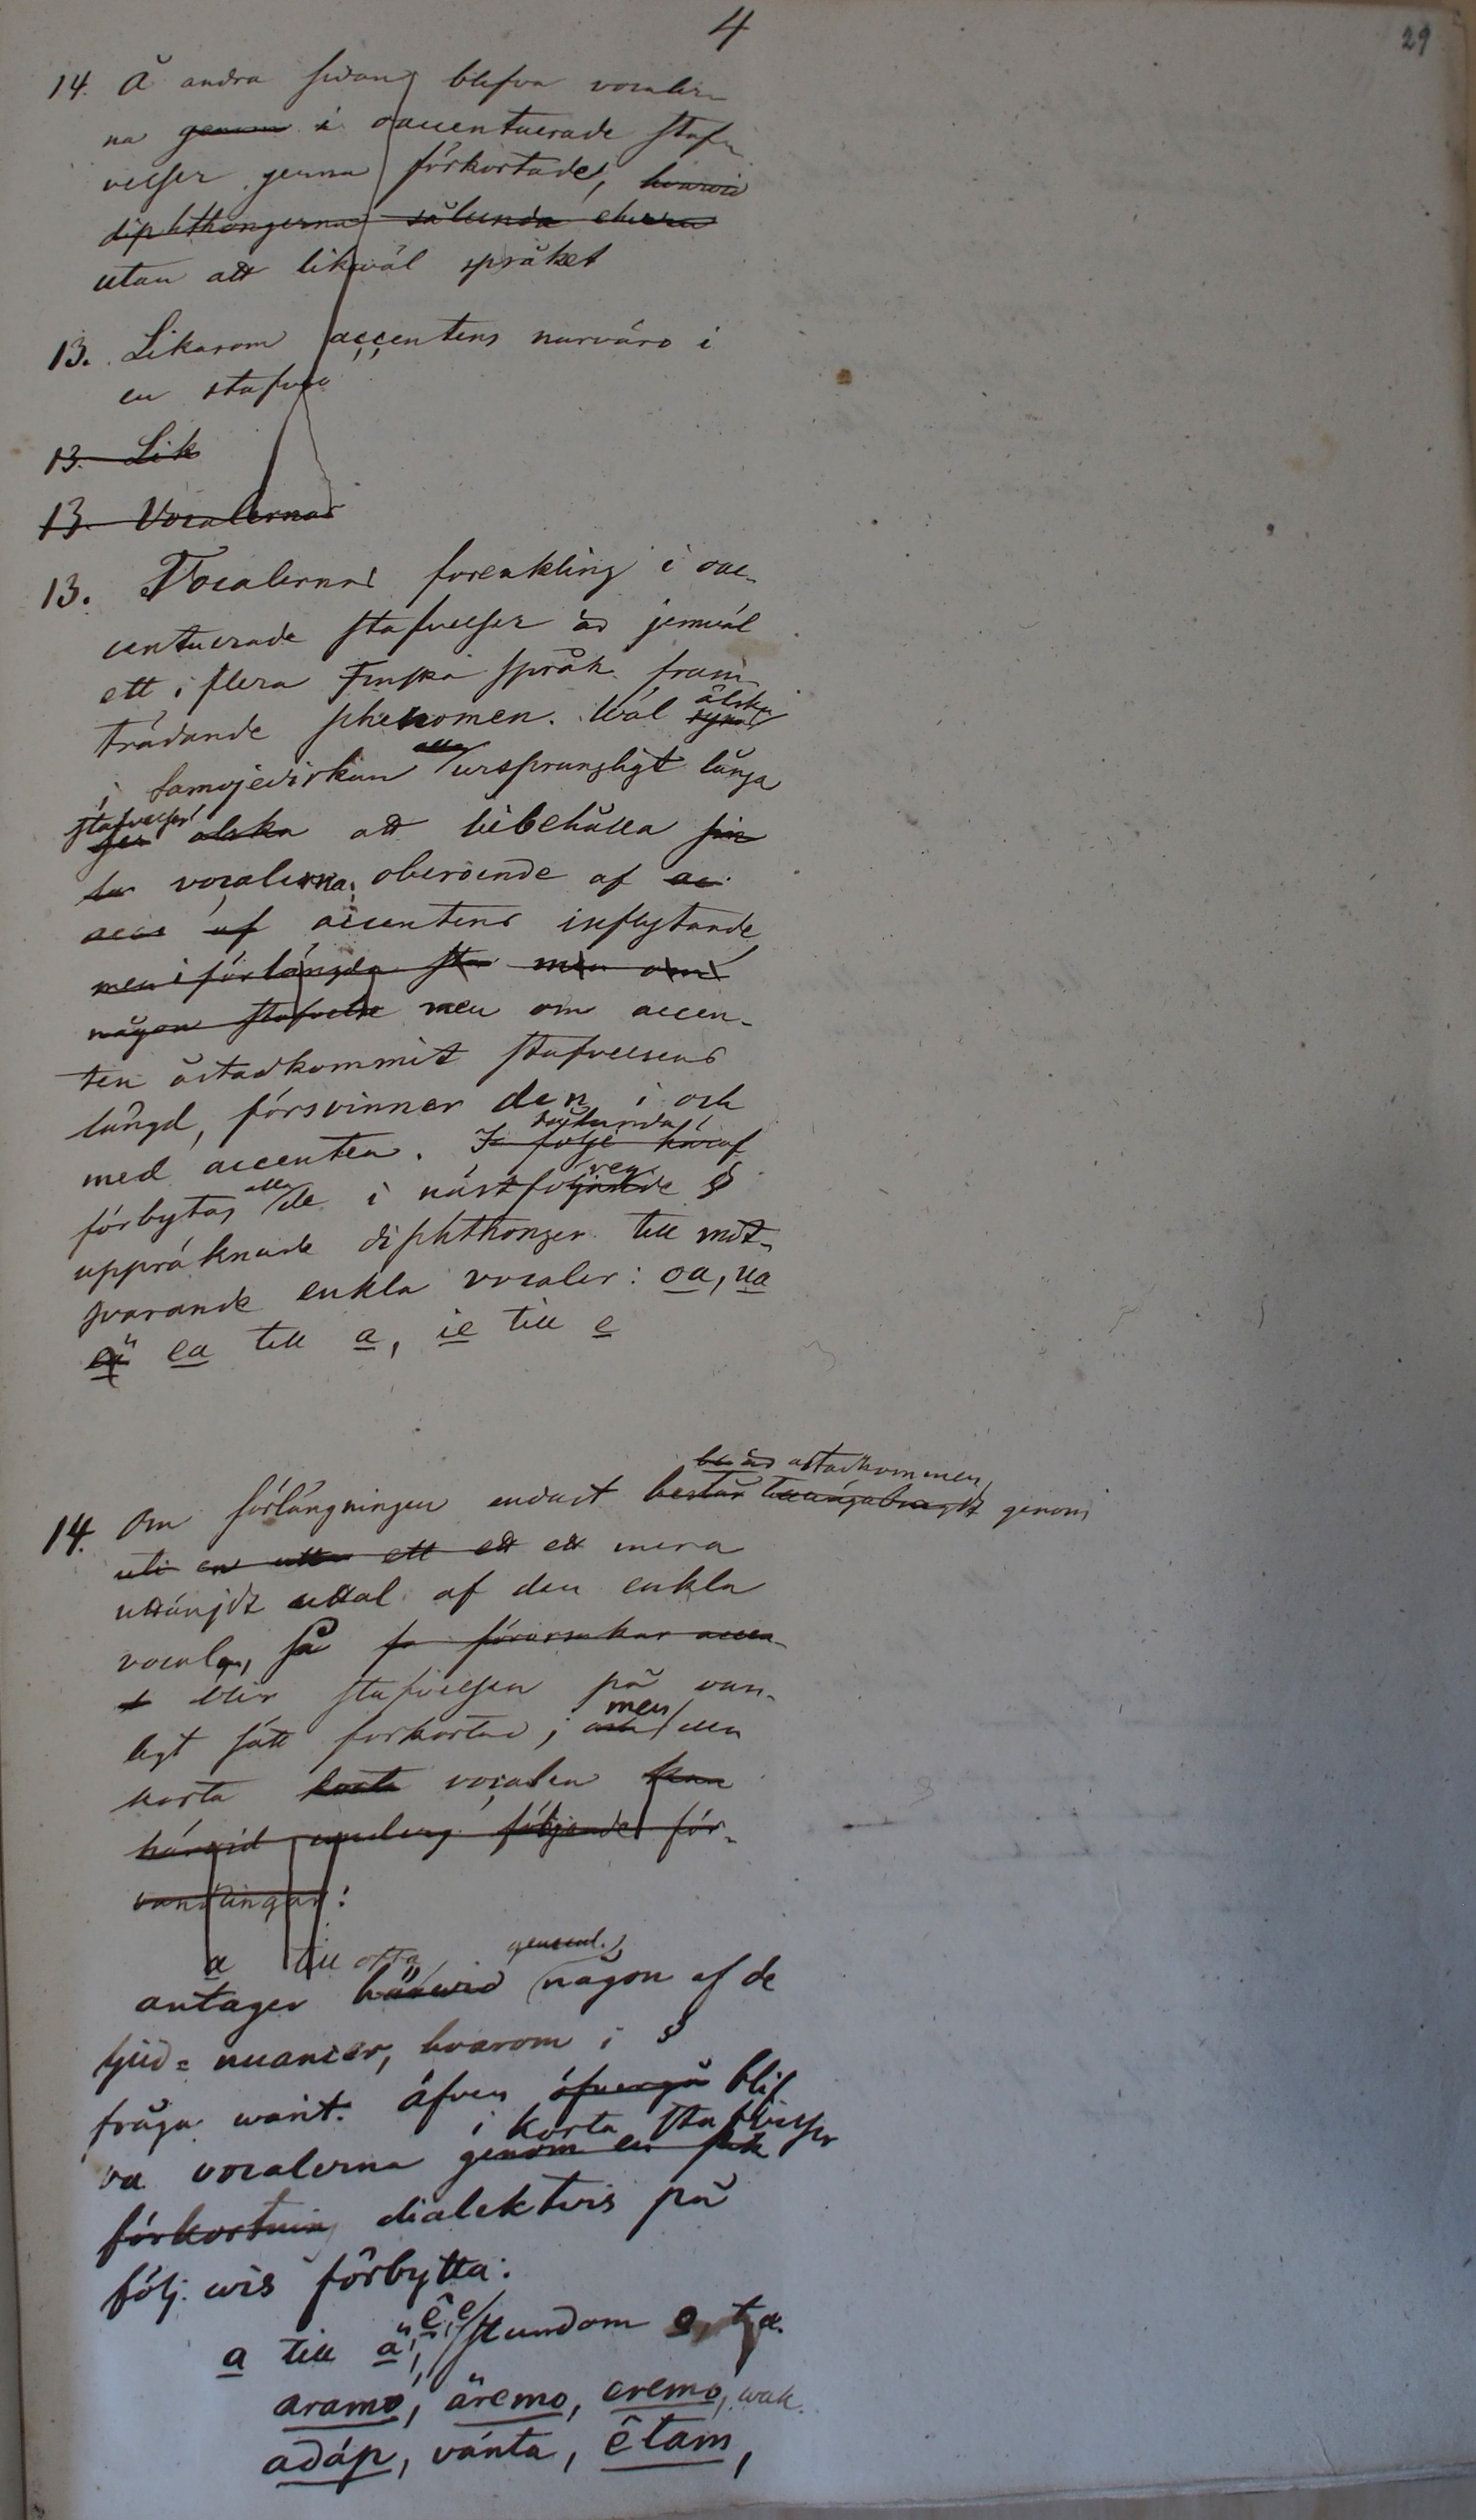 4
29
14. Å andra sidan blifva vocaler-
na genom i oaccentuerade staf-
velser gerna förkortade, hvarvid
diphthongerna sålunda
utan att likväl språket
13. Likasom accentens närvaro i
en stafvelse
13. Lik
13. Vocalernas
13. Vocalernas förenkling i oac-
centuerade stafvelser är jemväl
ett i flera Finska språk fram-
älska
trädande phenomen. Wäl synas
alla
i Samojediskan ursprungligt långa
stafvelser
älska att bibehålla sin
vocalerna oberoende af ac-
acce af accentens inflytande
men i förlängda sta men om
någon stafvelse men om accen-
ten åstadkommit stafvelsens
längd, försvinner den i och
sålunda
med accenten. I följe häraf
alla
förbytas de i nästföljande §
uppräknade diphthonger till mot-
svarande enkla vocaler: oa, ua
eä ea till a, ie till e
är åstadkommen
14. Om förlängningen endast består tillvägabragdt genom
uti en ett ett ett mera
uttänjdt uttal af den enkla
vocalen, så förorsakar accen-
t blir stafvelsen på van-
men
ligt sätt förkortad, och den
korta korta vocalen kan
härvid undergå följande för-
vandlingar:
a till
ofta
antager härvid någon af de
ljud-nuancer, hvarom i §
fråga warit. Äfven öfvergå blif-
i korta stafvelser
va vocalerna genom en
förkortning dialektvis på
följ. wis förbytta:
a till ä, ê, e stundom
aramo, äremo, eremo, wak.
adáp, vánta, êtam,